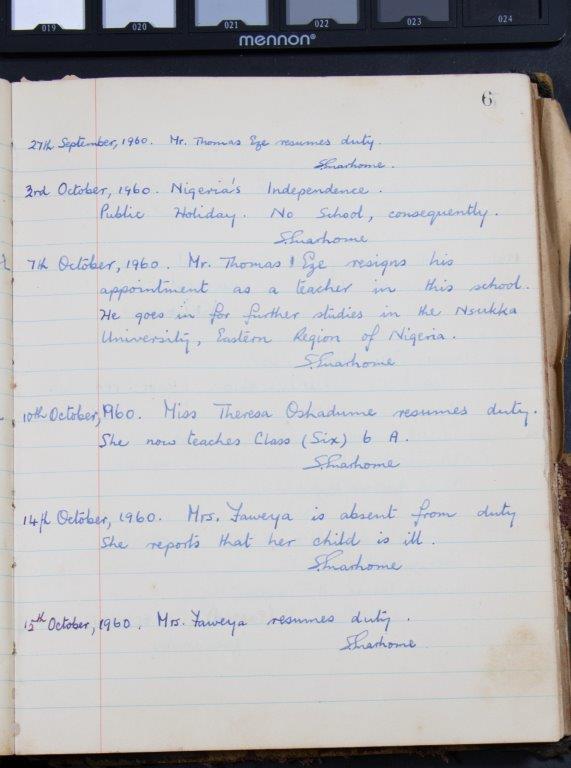 019 020 021 022 023 024
mennon®
6
27th September, 1960. Mr. Thomas Eze resumes duty.
3rd October, 1960. Nigeria's Independence.
Public Holiday. No School, consequently.
7th October, 1960. Mr. Thomas Eze resigns his
appointment as a teacher in this school.
He goes in for further studies in the Nsukka
University, Eastern Region of Nigeria.
10th October, 1960. Miss Theresa Oshadume resumes duty.
She now teaches Class (Six) 6 A.
14th October, 1960. Mrs. Faweya is absent from duty
She reports that her child is ill.
15th October, 1960. Mrs. Faweya resumes duty.